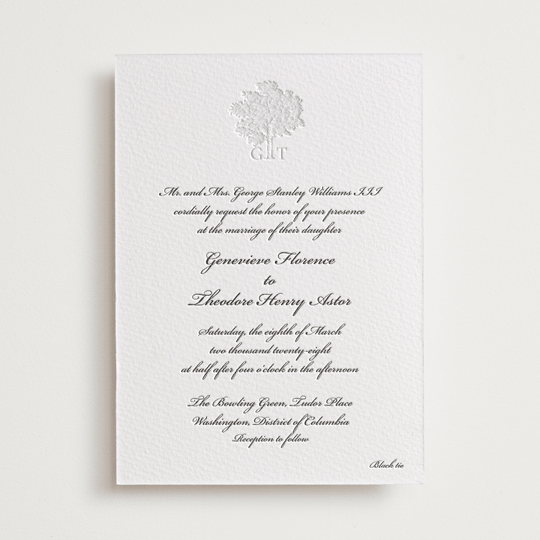 G T
Mr. and Mrs. George Stanley Williams III
cordially request the honor of your presence
at the marriage of their daughter
Genevieve Florence
to
Theodore Henry Astor
Saturday, the eighth of March
two thousand twenty-eight
at half after four o'clock in the afternoon
The Bowling Green, Tudor Place
Washington, District of Columbia
Reception to follow
Black tie